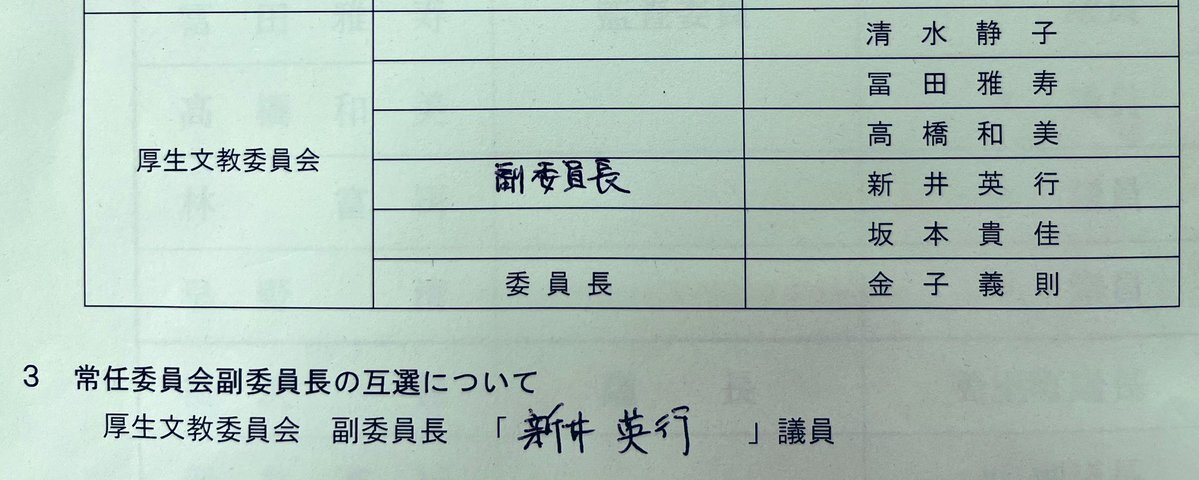 清水静子
冨田雅寿
高橋和美
厚生文教委員会
副委員長 新井英行
坂本貴佳
委員長 金子義則
3 常任委員会副委員長の互選について
厚生文教委員会 副委員長 「新井 英行」議員